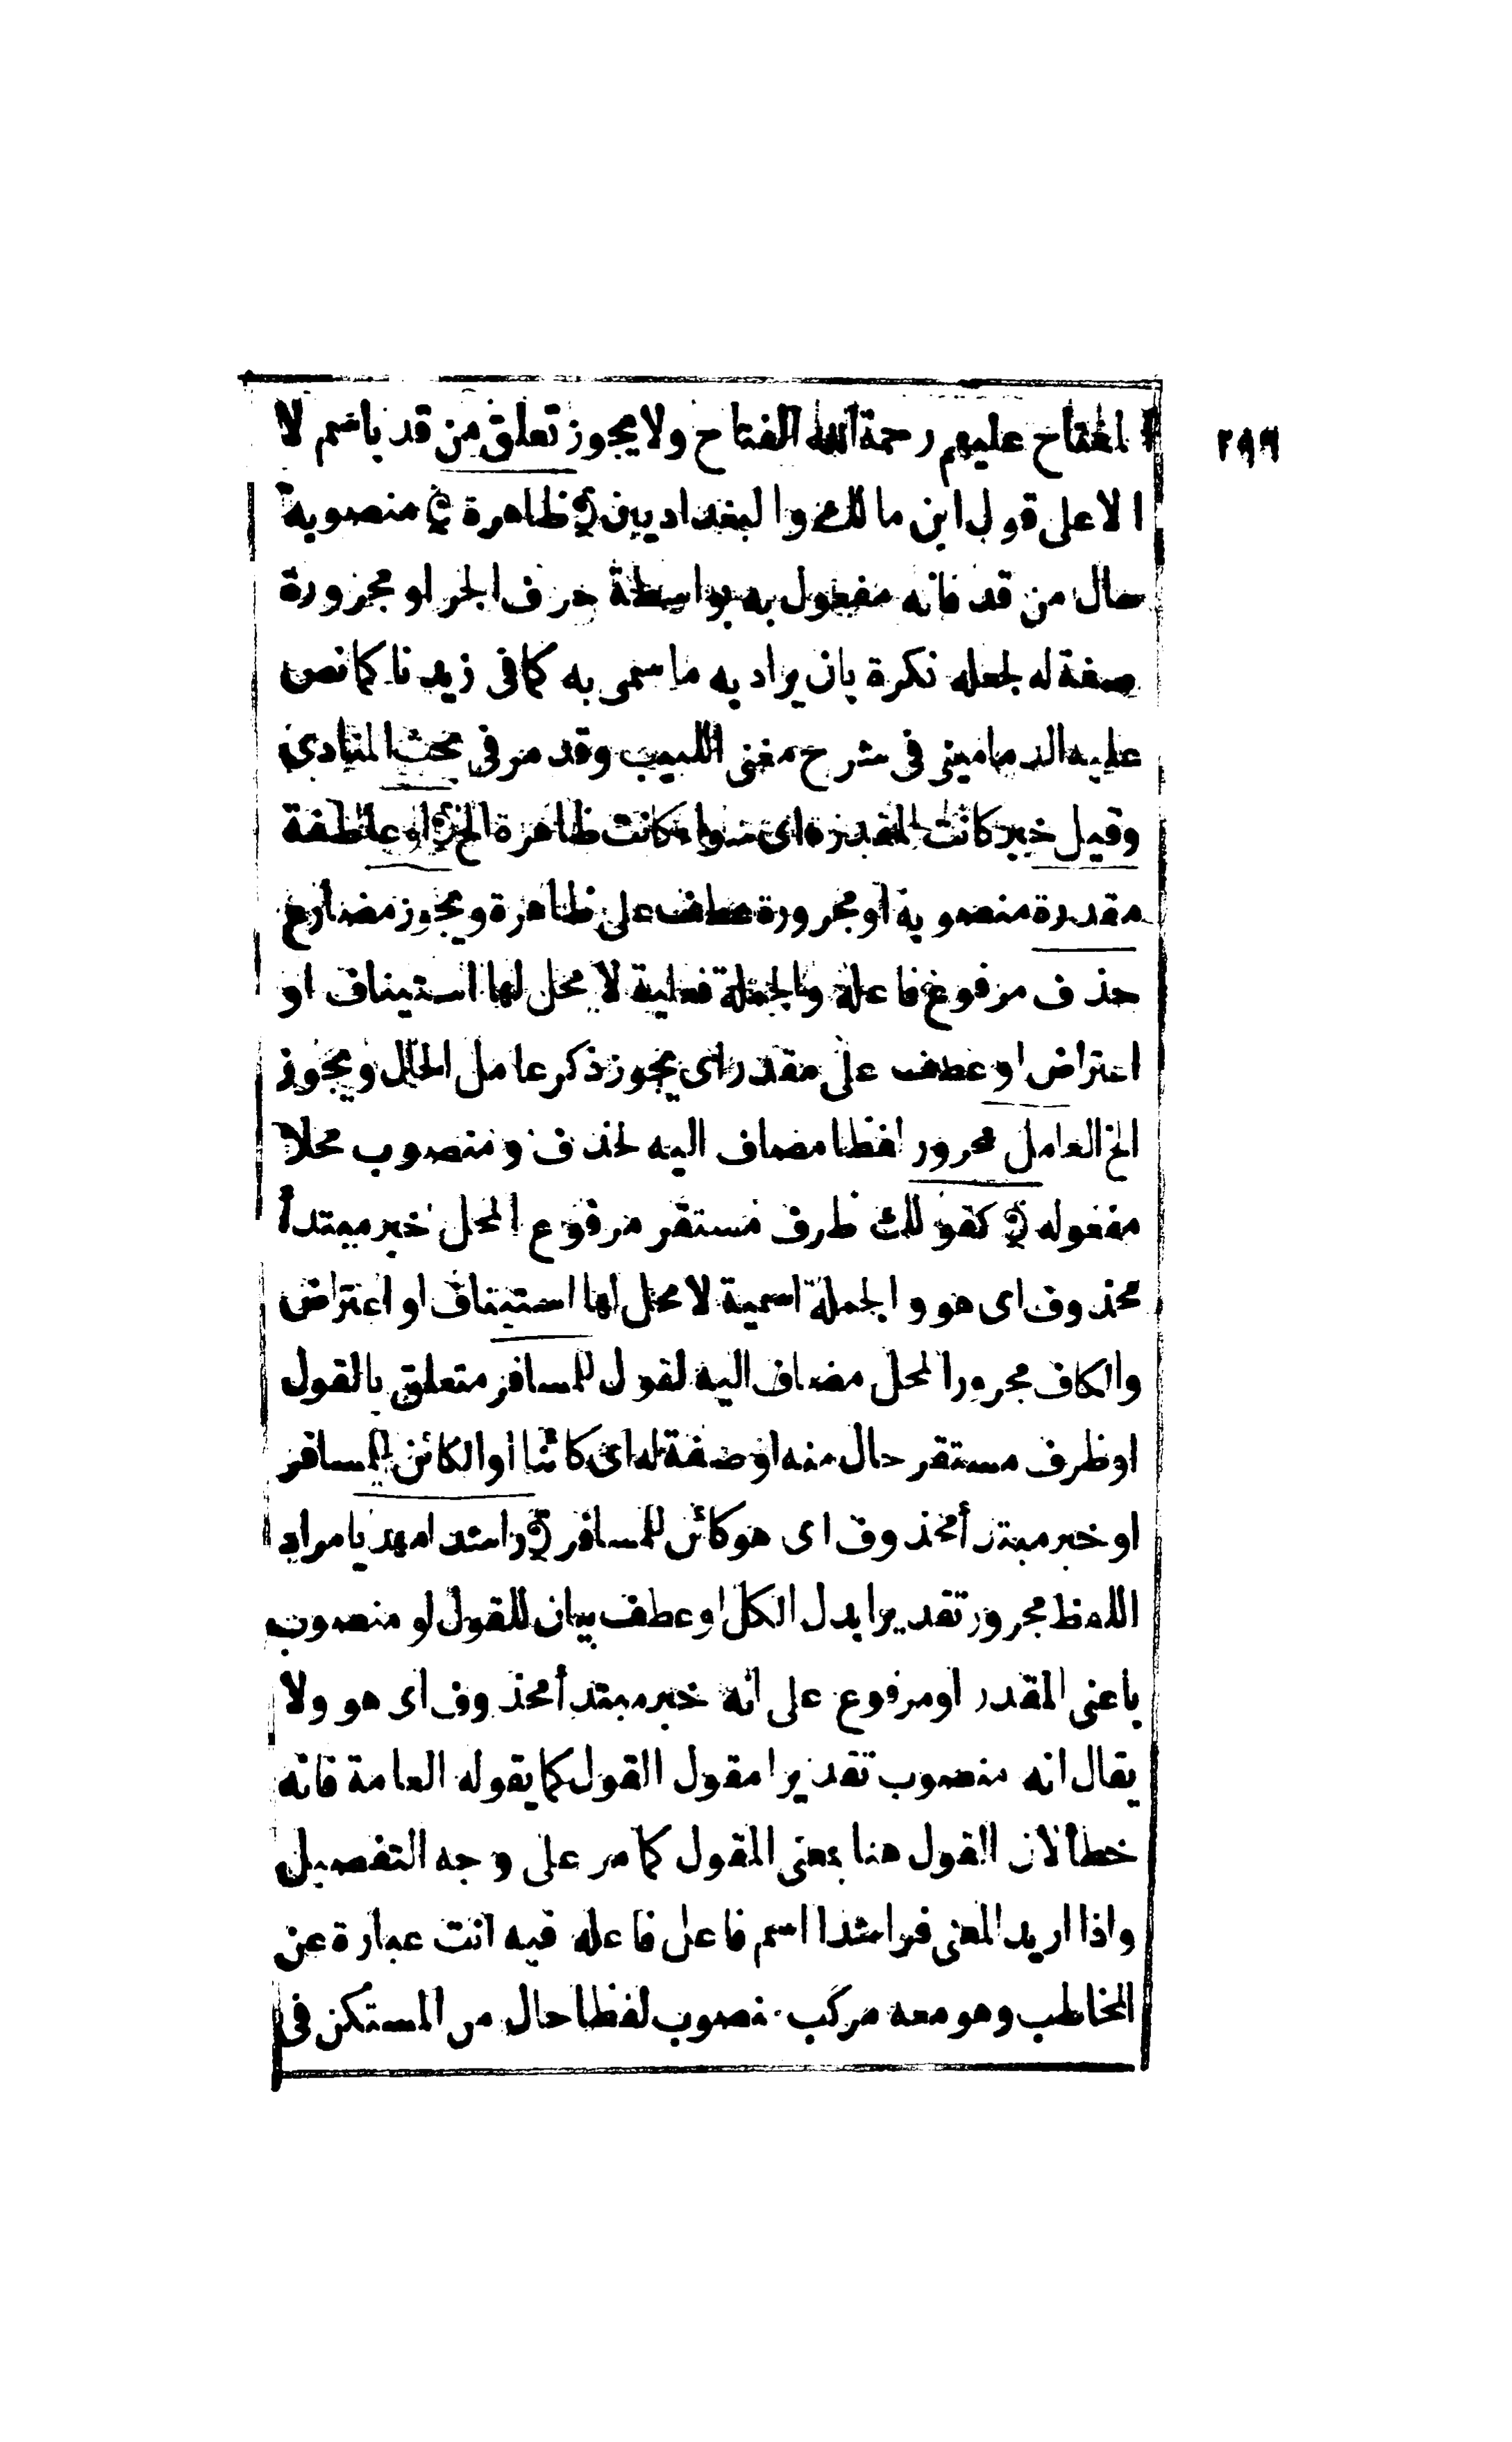 المفتاح عليهم رحمة الله الفتاح ولا يجوز تعلق من قد باسم لا
٢٩٦
الا على قول ابن مالك والبغداديين ظاهرة منصوبة
حال من قد فانه مفعول به بواسطة حرف الجر او مجرورة
صفة له لجعله نكرة بان يراد به ما سمى به كما فى زيدنا كما نص
عليه الدمامينى فى شرح مغنى اللبيب وقد مر فى بحث المنادى
وقيل خبر كانت المقدرة اى سواء كانت ظاهرة الخ او عاطفة
مقدرة منصوبة او مجرورة عطف على ظاهرة ويجوز مضارع
حذف مرفوع فاعله والجملة فعلية لا محل لها استيناف او
اعتراض او عطف على مقدر اى يجوز ذكر عامل الحال ويجوز
الخ العامل مجرور لفظا مضاف اليه لحذف ومنصوب محلا
مفعوله كقولك ظرف مستقر مرفوع المحل خبر مبتدأ
محذوف اى هو والجملة اسمية لا محل لها استيناف او اعتراض
والكاف مجرور المحل مضاف اليه لقول للمسافر متعلق بالقول
او ظرف مستقر حال منه او صفة له اى كائنا او الكائن للمسافر
او خبر مبتدأ محذوف اى هو كائن للمسافر راشدا مهديا مراد
اللفظ مجرور تقديرا بدل الكل او عطف بيان للقول او منصوب
باعنى المقدر او مرفوع على انه خبر مبتدأ محذوف اى هو ولا
يقال انه منصوب تقديرا مقول القول كما يقوله العامة فانه
خطأ لان القول هنا بمعنى المقول كما مر على وجه التفصيل
واذا اريد المعنى فراشدا اسم فاعل فاعله فيه انت عبارة عن
المخاطب وهو معه مركب منصوب لفظا حال من المستكن فى